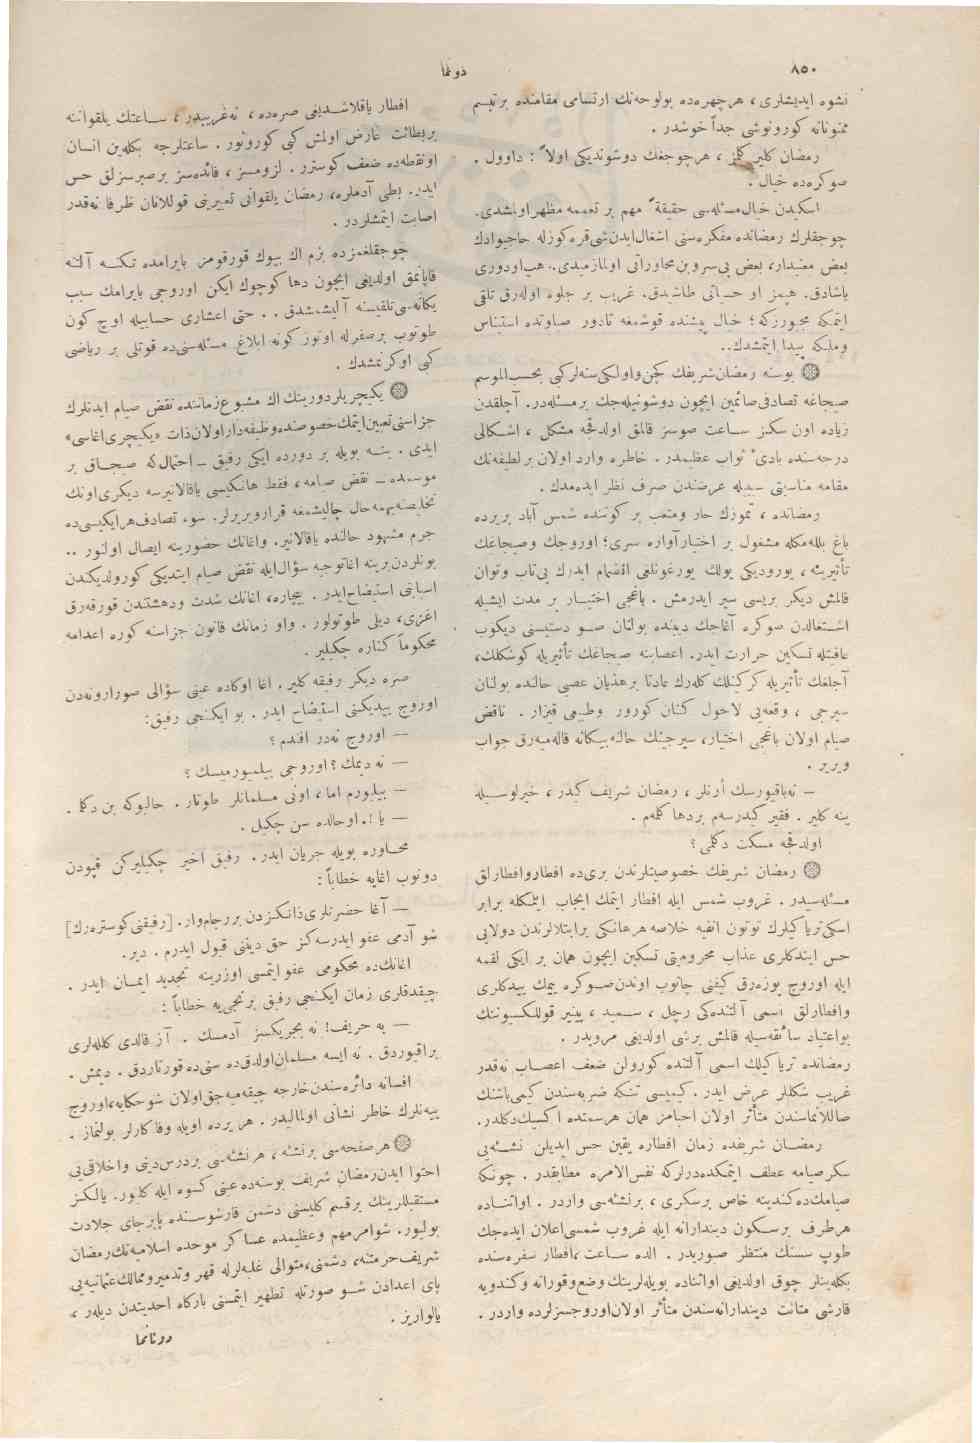 ٨٥٠
دونما
نشوه ايديشلرى ، هر چهره ده بولوحه نك ارتسامى مقامنده برتبسم
ممنونانه كورونوشى جداً خوشدر .
رمضان كلير كلمز ، هر چوجغك دوشونديكى اولا ً : داوول .
صوكره ده خيال .
اسكيدن خيال مسئله سى حقيقة ً مهم بر تعميمه مظهر اولمشدى .
چوجقلرك رمضانده مفكره سنى اشغال ايدن شى قره كوزله حاجيوادك
بعض مفيدار ، بعض بى سروبن محاوراتى اولمازميدى .. هپ اودورى
ياشادق . هپمز او حسياتى طاشيدق . غريب بر جلوه اوله رق تلقى
ايتمكه مجبورزكه ؛ خيال پيشنده قوشمغه تادور صباوتده استيناس
وملكه پيدا ايتمشدك ..
بوسنه رمضان شريفك كچن واولكى سنه لركى بحسب الموسم
صيجاغه تصادفى صائمين ايچون دوشونيله جك برمسئله در . آچلقدن
زياده اون سكز ساعت صوسز قالمق اولدقجه مشكل ، اشكالى
درجه سنده بادئ ثواب عظيمدر . خاطره وارد اولان بر لطيفه نك
مقامه مناسبتى سببيله عرضندن صرف نظر ايده مدك .
رمضانده ، تموزك حار ومتعب بر كوننده شمس آباد بريرده
باغ بللمكله مشغول بر اختيار آواره سرى ؛ اوروجك وصيجاغك
تأثيريله ، يوروديكى يولك يورغونلغى انضمام ايدرك بى تاب وتوان
قالمش ديكر بريسى سير ايدرمش . باغجى اختيار بر مدت ايشيله
اشتغالدن صوكره آغاجك ديبنده بولنان صو دستيسنى ديكوب
عافيتله تسكين حرارت ايدر . اعصابنه صيجاغك تأثيريله كوشكلك ،
آجلغك تأثيريله كركينلك كله رك عادتا برهذيان عصبى حالنده بولنان
سيرجى ، وقعه يى لاحول كنان كورور وطبيعى قيزار . ناقض
صيام اولان باغجى اختيار ، سيرجينك حالنه بيكانه قاله ميه رق جواب
ويرير .
– نه باقيورسك أرنلر ، رمضان شريف كيدر ، خيرلوسيله
ينه كلير . فقير كيدرسه م بر دها كلمم .
اولدقجه مسكت دكلمى ؟
رمضان شريفك خصوصيتلرندن برى ده افطار وافطارلق
مسئله سيدر . غروب شمس ايله افطار ايتمك ايجاب ايتمكله برابر
اسكى ترياكيلرك توتون انفيه خلاصه هر هانكى بر ابتلالرندن دولايى
حس ايتدكلرى عذاب محروميتى تسكين ايچون همان بر ايكى لقمه
ايله اوروج بوزه رق كيفنى چاتوب اوندن صوكره ييمك ييدكلرى
وافطارلق اسمى آلتنده كى رچل ، سميد ، پينير قوللكسيوننك
بواعتياد سائقه سيله قالمش برشى اولديغى مرويدر .
رمضانده ترياكيلك اسمى آلتنده كورولن ضعف اعصاب نه قدر
غريب شكللر عرض ايدر . كيميسى تنكه ضربه سندن كيمى باشنك
صاللانماسندن متأثر اولان احبامز همان هر سمتده اكسيك دكلدر .
رمضان شريفده زمان افطاره يقين حس ايديلن نشئه يى
سكر صيامه عطف ايتمكده درلركه نفس الامره مطابقدر . چونكه
صيامك ده كندينه خاص بر سكرى ، بر نشئه سى واردر . اواثناده
هر طرف بر سكون ديندارانه ايله غروب شمسى اعلان ايده جك
طوپ سسنك منتظر صوريدر . الده ساعت ، افطار سفره سنده
بكله ينلر چوق اولديغى اواثناده بويله لرينك وضع وقورانه وكندويه
قارشى متانت ديندارانه سندن متأثر اولان اوروجسزلرده واردر .
افطار ياقلاشديغى صره ده ، نه غريبدر ، ساعتك يلقواننه
بر بطائت عارض اولمش كبى كورونور . ساعتلرجه بكله ين انسان
اونقطه ده ضعف كوسترر . لزومسز ، فائده سز بر صبرسزلق حس
ايدر . بطى آدملره ، رمضان يلقوانى تعبيرينى قوللانان ظرفا نه قدر
اصابت ايتمشلردر .
چوجقلغمزده بزم اك بيوك قورقومز بايرامده تكنه آلتنه
قاپانمق اولديغى ايچون دها كوچوك ايكن اوروجى بايرامك سبب
يكانه سى تلقيسنه آليشمشدق .. حتى اعشارى حسابيله اوچ كون
طوتوب برصفرله اونوز كونه ابلاغ مسئله سنى ده قوتلى بر رياضى
كبى اوكرنمشدك .
يكيچريلر دورينك اك مشبوع زماننده نقض صيام ايدنلرك
جزاسنى تعيين ايتمك خصوصنده وظيفه دار اولان ذات « يكيچرى اغاسى »
ايدى . ينه بويله بر دورده ايكى رفيق – احتمال كه صيجاق بر
موسمده – نقض صيامه ، فقط هانكيسى ياقالانيرسه ديكرى اونك
تخليصنه بهمه حال چاليشمغه قرارويريرلر . سوء تصادف هر ايكيسى ده
جرم مشهود حالنده ياقالانير . واغانك حضورينه ايصال اولنور ..
بونلردن برينه اغا توجيه سؤال ايله نقض صيام ايتديكى كورولديكندن
اسبابنى استيضاح ايدر . بيچاره ، اغانك شدت ودهشتندن قورقه رق
اغزى ، ديلى طوتولور . واو زمانك قانون جزاسنه كوره اعدامه
محكوماً كناره چكيلير .
صره ديكر رفيقه كلير . اغا اوكاده عينى سؤالى صورارونه دن
اوروج ييديكنى استيضاح ايدر . بو ايكنجى رفيق :
— اوروج نه در افندم ؟
— نه ديمك ؟ اوروجى بيلميورميسك ؟
— بيليورم اما ، اونى مسلمانلر طوتار . حالبوكه بن دكلم .
— يا !. اوحالده سن چكيل .
محاوره بويله جريان ايدر . رفيق اخير چكيليركن قپودن
دونوب اغايه خطاباً :
— آغا حضرتلرى ذاتكزدن بر رجام وار . [ رفيقنى كوستره رك ]
شو آدمى عفو ايدرسه كز حق دينى قبول ايدرم . دير .
اغانك ده محكومى عفو ايتمسى اوزرينه تجديد ايمان ايدر .
چيقدقلرى زمان ايكنجى رفيق برنجى يه خطاباً :
— به حريف ! نه بجريكسز آدمسك . آز قالدى كلله لرى
براقيوردق . نه ايسه مسلمان اولدق ده سنى ده قورتاردق . ديمش .
افسانه دائره سندن خارجه چيقه ميه جق اولان شو حكايه ، اوروج
ييه نلرك خاطر نشانى اولماليدر . هر يرده اويله وفا كارلر بولنماز .
هر صفحه سى برنشئه ، هر نشئه سى بر درس دينى واخلاقى يى
احتوا ايدن رمضان شريف بوسنه ده عينى كسوه ايله كلدى . يالكز
مستقبللرينك بر قسم كليسنى دشمن قارشوسنده پابرجاى جلادت
بوليور . شوامر مهم وعظيمده عساكر موحده اسلاميه نك رمضان
شريف حرمتنه ، دشمنى ، متوالى غلبه لرله قهر وتدمير وممالك عثمانيه يى
پاى اعدادن شو صورتله تطهير ايتمسنى باركاه احديتدن ديلر ،
يالواريز .
دونانما